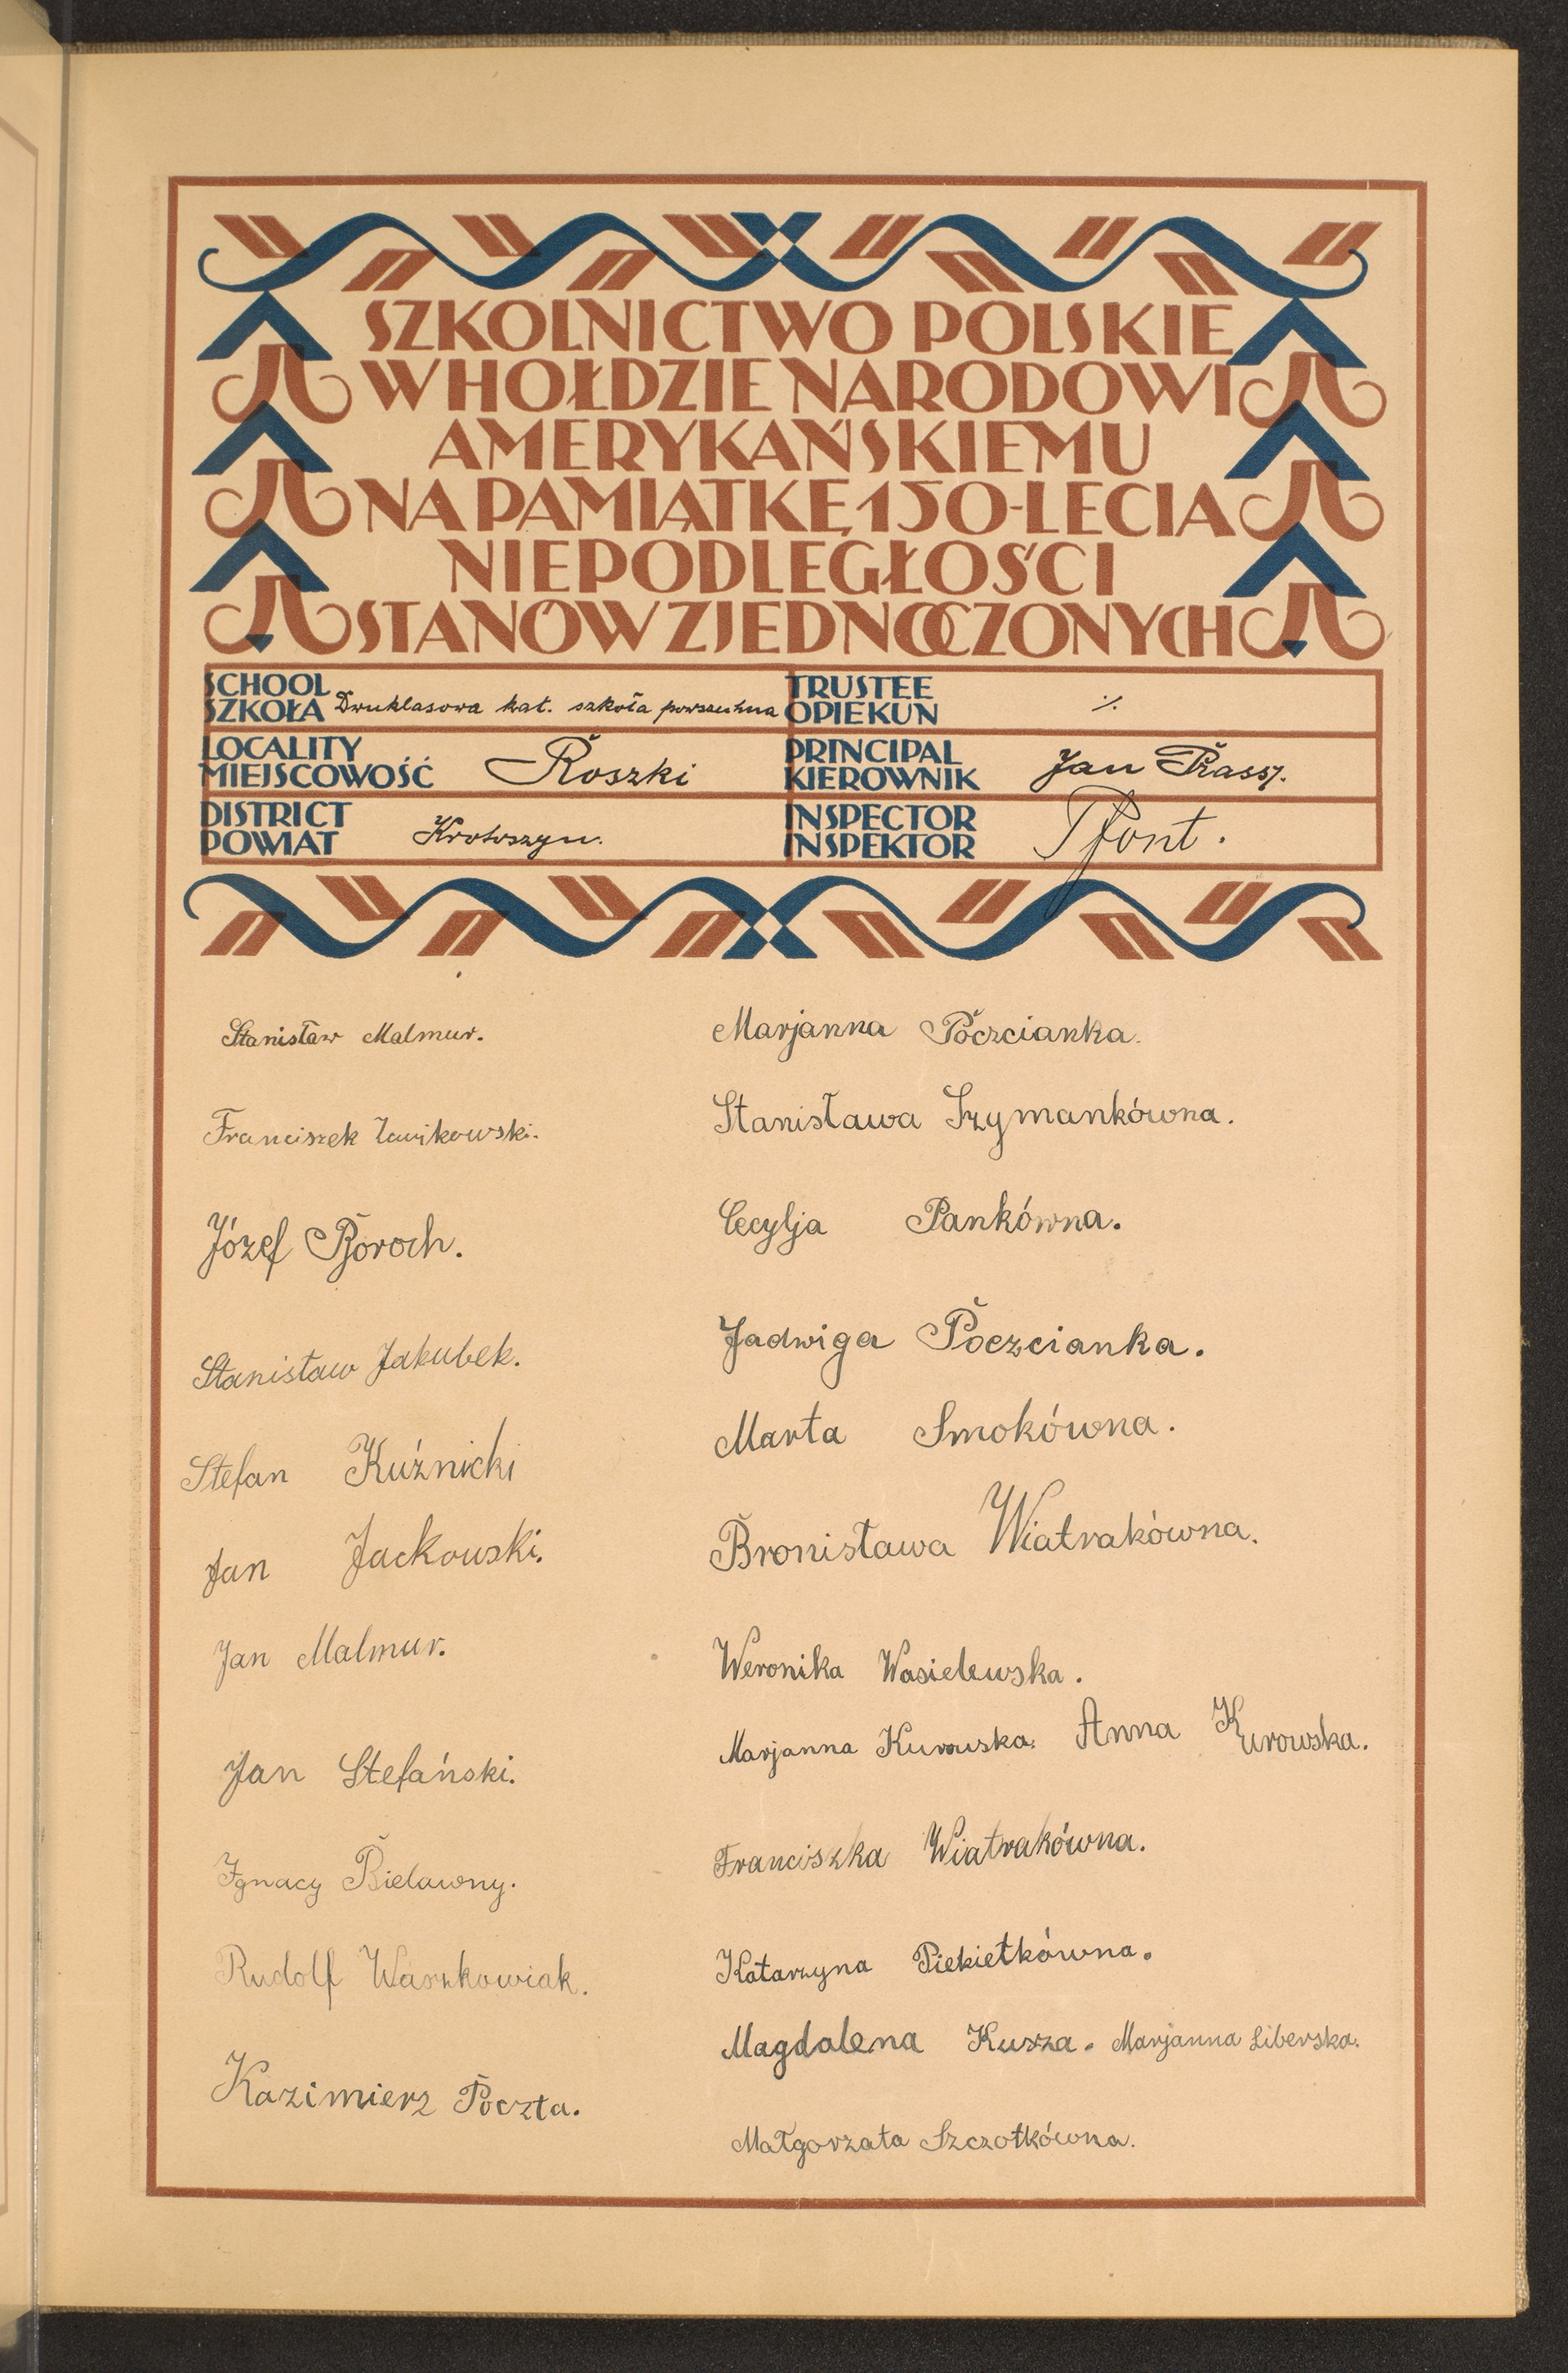 SZKOLNICTWO POLSKIE
W HOŁDZIE NARODOWI
AMERYKAŃSKIEMU
NA PAMIĄTKĘ 150-LECIA
NIEPODLEGŁOŚCI
STANÓW ZJEDNOCZONYCH
SCHOOL
SZKOŁA Dwuklasowa kat. szkoła powszechna
TRUSTEE
OPIEKUN ./.
LOCALITY
MIEJSCOWOŚĆ Roszki
PRINCIPAL
KIEROWNIK Jan
DISTRICT
POWIAT Krotoszyn.
INSPECTOR
INSPEKTOR Pfont.
Stanisław Malmur.
Franciszek
Józef Boroch.
Stanisław Jakubek.
Stefan Kuźnicki
Jan Jackowski.
Jan Malmur.
Jan Stefański.
Ignacy Bielawny.
Rudolf Waszkowiak.
Kazimierz Poczta.
Marjanna Poczcianka.
Stanisława Szymankówna.
Cecylja Pankówna.
Jadwiga Poczcianka.
Marta Smokówna.
Bronisława Wiatrakówna.
Weronika Wasielewska.
Marjanna Kurowska. Anna Kurowska.
Franciszka Wiatrakówna.
Katarzyna Piekiełkówna.
Magdalena Kusza. Marjanna Liberska.
Małgorzata Szczotkówna.